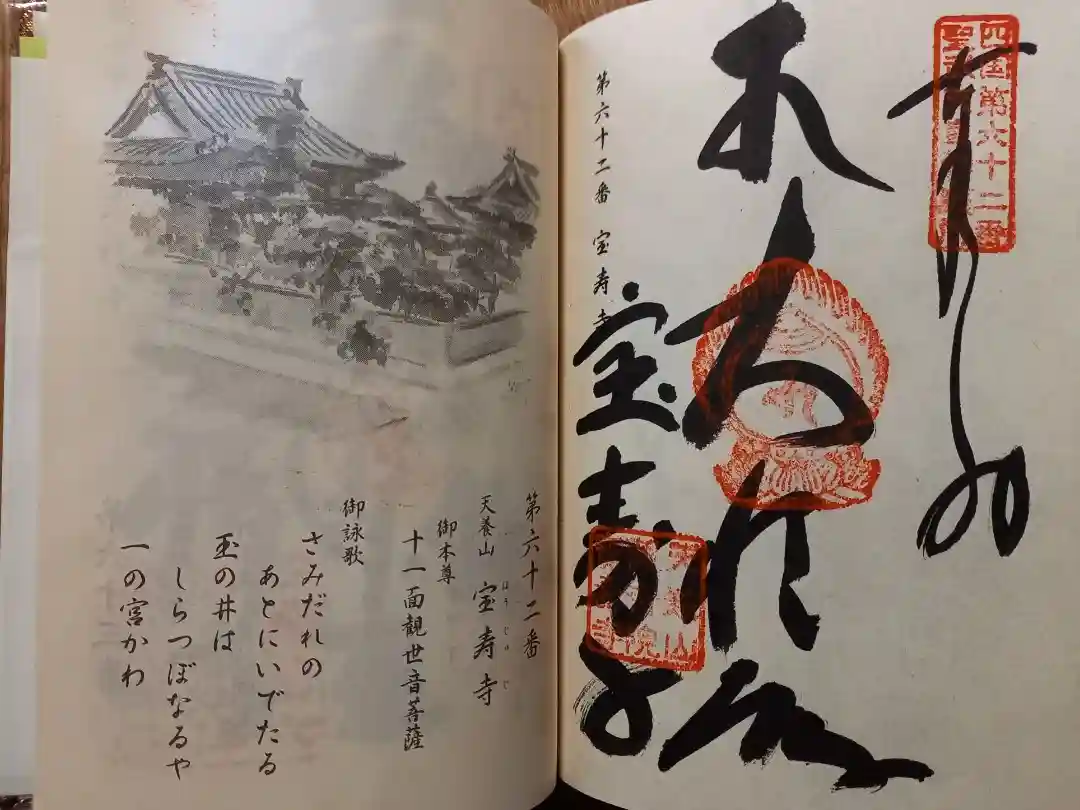 四国第六十二番
奉納
宝寿寺
第六十二番 宝寿寺
第六十二番
天養山 宝寿寺
ほうじゅじ
御本尊
十一面観世音菩薩
御詠歌
さみだれの
あとにいでたる
玉の井は
しらつぼなるや
一の宮かわ